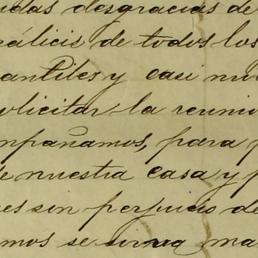 udas desgracias de
rálicis de todos los
antiles y casi nu
olicitar la reunio
npañamos, para p
e nuestra casa y p
es sin perjuicio de
mos se sirva ma